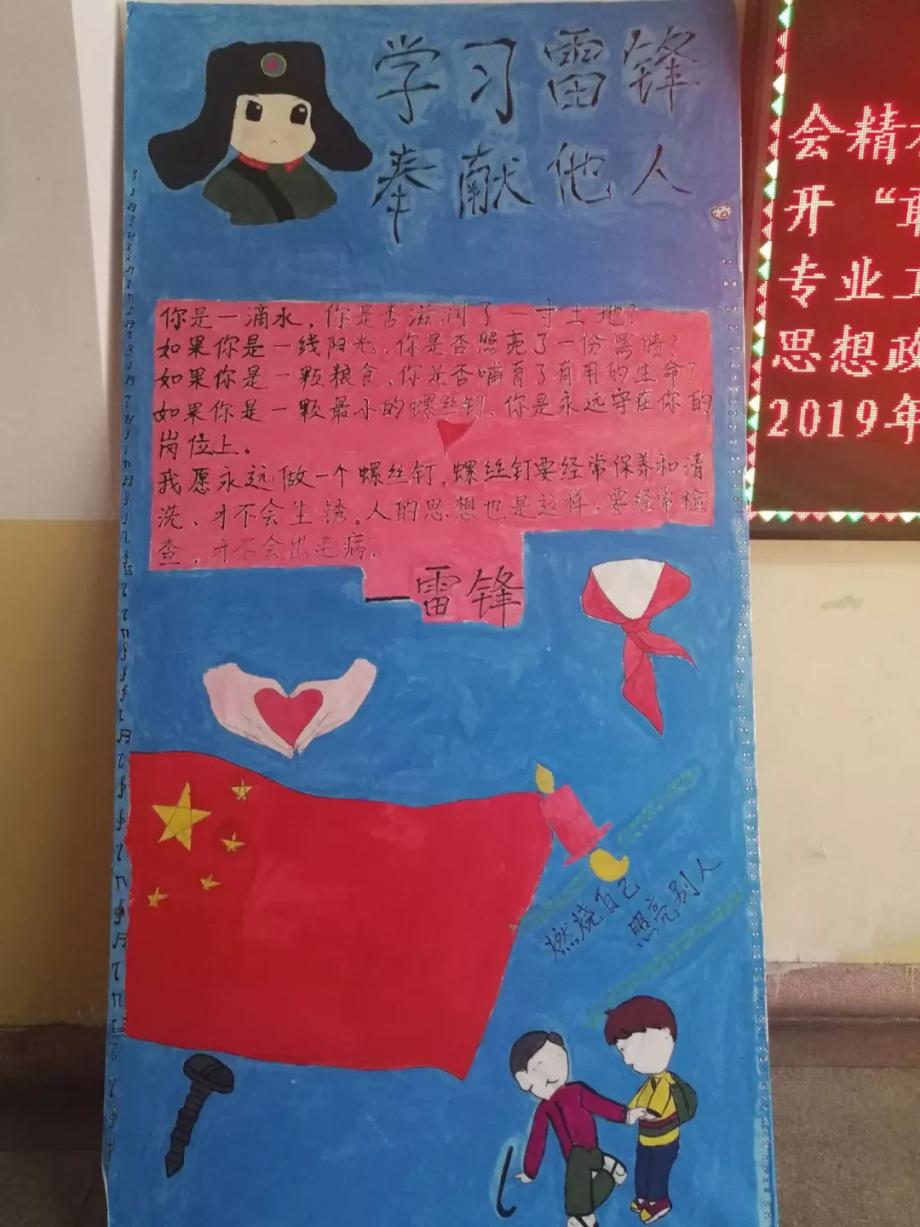 学习雷锋
奉献他人
你是一滴水，你是否滋润了一寸土地？
如果你是一线阳光，你是否照亮了一份黑暗？
如果你是一颗粮食，你是否哺育了有用的生命？
如果你是一颗最小的螺丝钉，你是永远守在你的
岗位上。
我愿永远做一个螺丝钉，螺丝钉要经常保养和清
洗，才不会生锈。人的思想也是这样，要经常检
查，才不会出毛病。
—雷锋
燃烧自己
照亮别人
会精
开“
专业
思想政
2019年